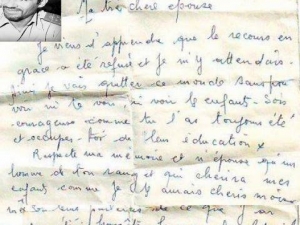 Ma très chère épouse
Je viens d'apprendre que le recours en
grâce a été refusé et je m'y attendais
je vais quitter ce monde sans pou
voir ni te voir ni voir les enfants. Sois
courageuse comme tu l'as toujours été
et occupe-toi de leur éducation
Respecte ma mémoire et n'épouse qu'un
homme de ton rang et qui chérira mes
enfants comme je les aurais chéris moi
de ce que